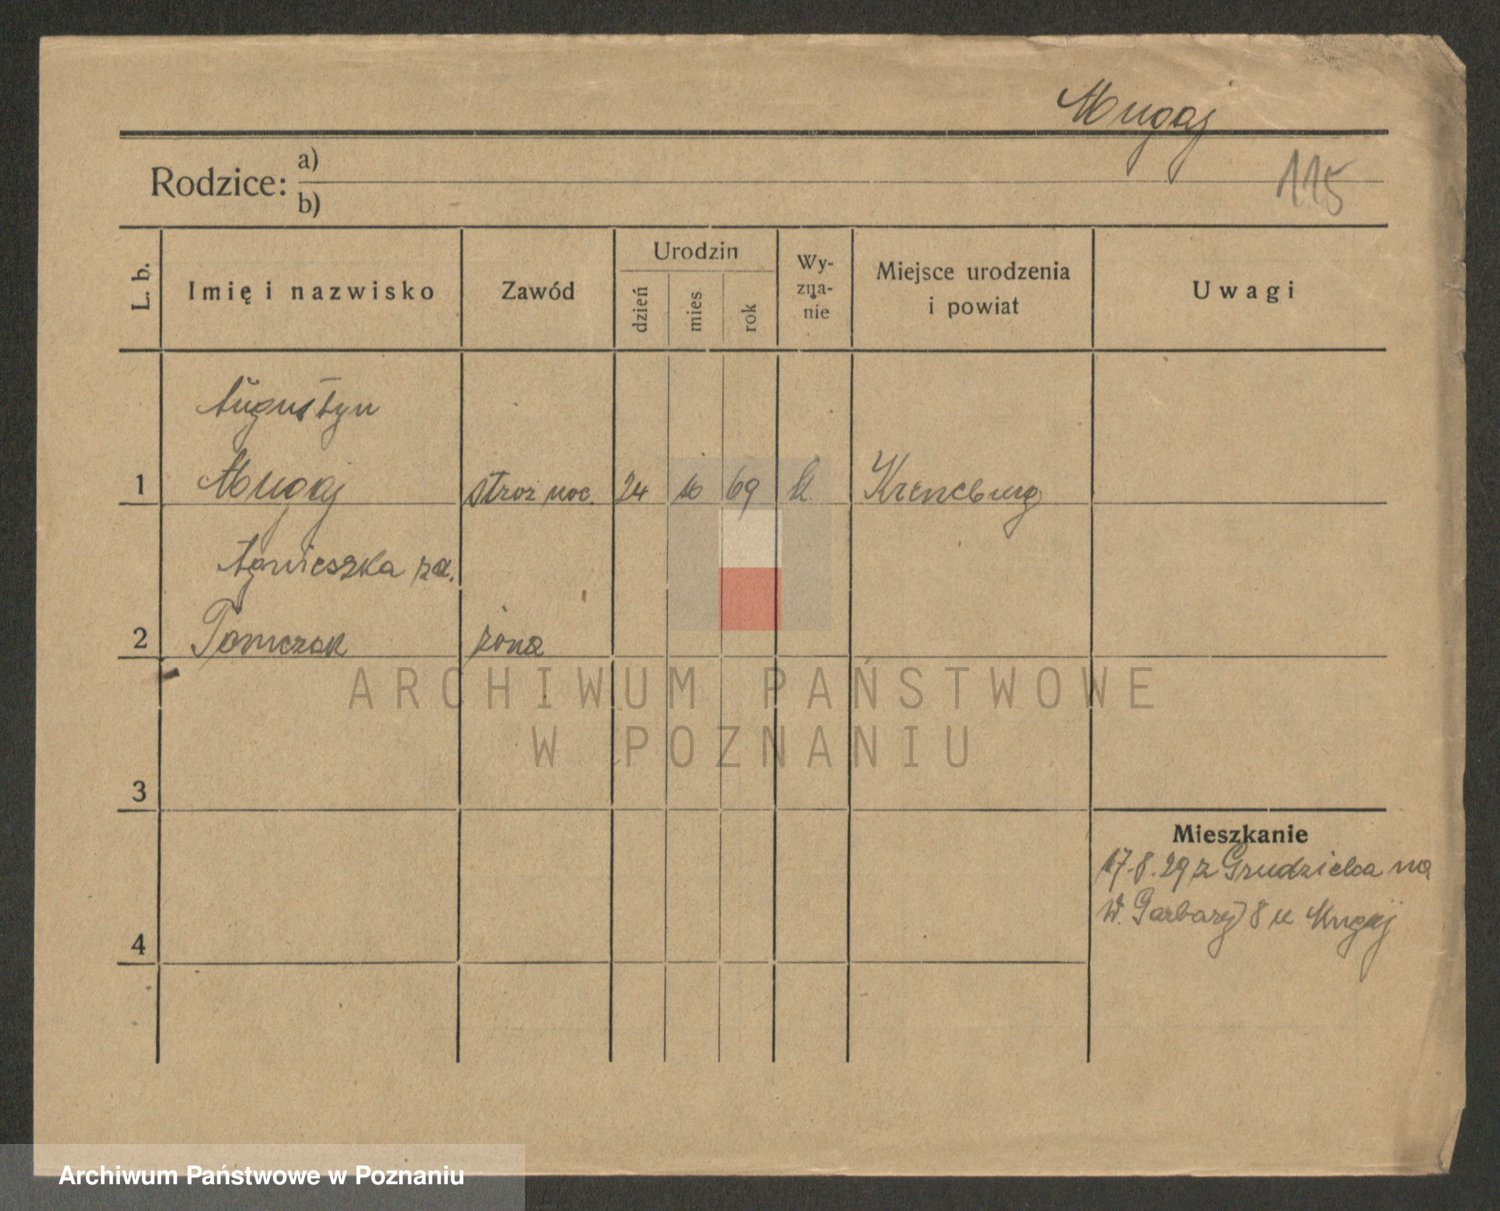 Mugaj
115
Rodzice: a)
b)
L. b.
Imię i nazwisko
Zawód
Urodzin
dzień
mies
rok
Wy-
zna-
nie
Miejsce urodzenia
i powiat
Uwagi
Augustyn
1 Mugaj stroz noc. 24 10 69 Kreneburg
Agnieszka za.
2 Tomczak żona
3
Mieszkanie
17.8.29 z Grudzielca na
W. Garbary 8 u Mugaj
4
ARCHIWUM PAŃSTWOWE
W POZNANIU
Archiwum Państwowe w Poznaniu